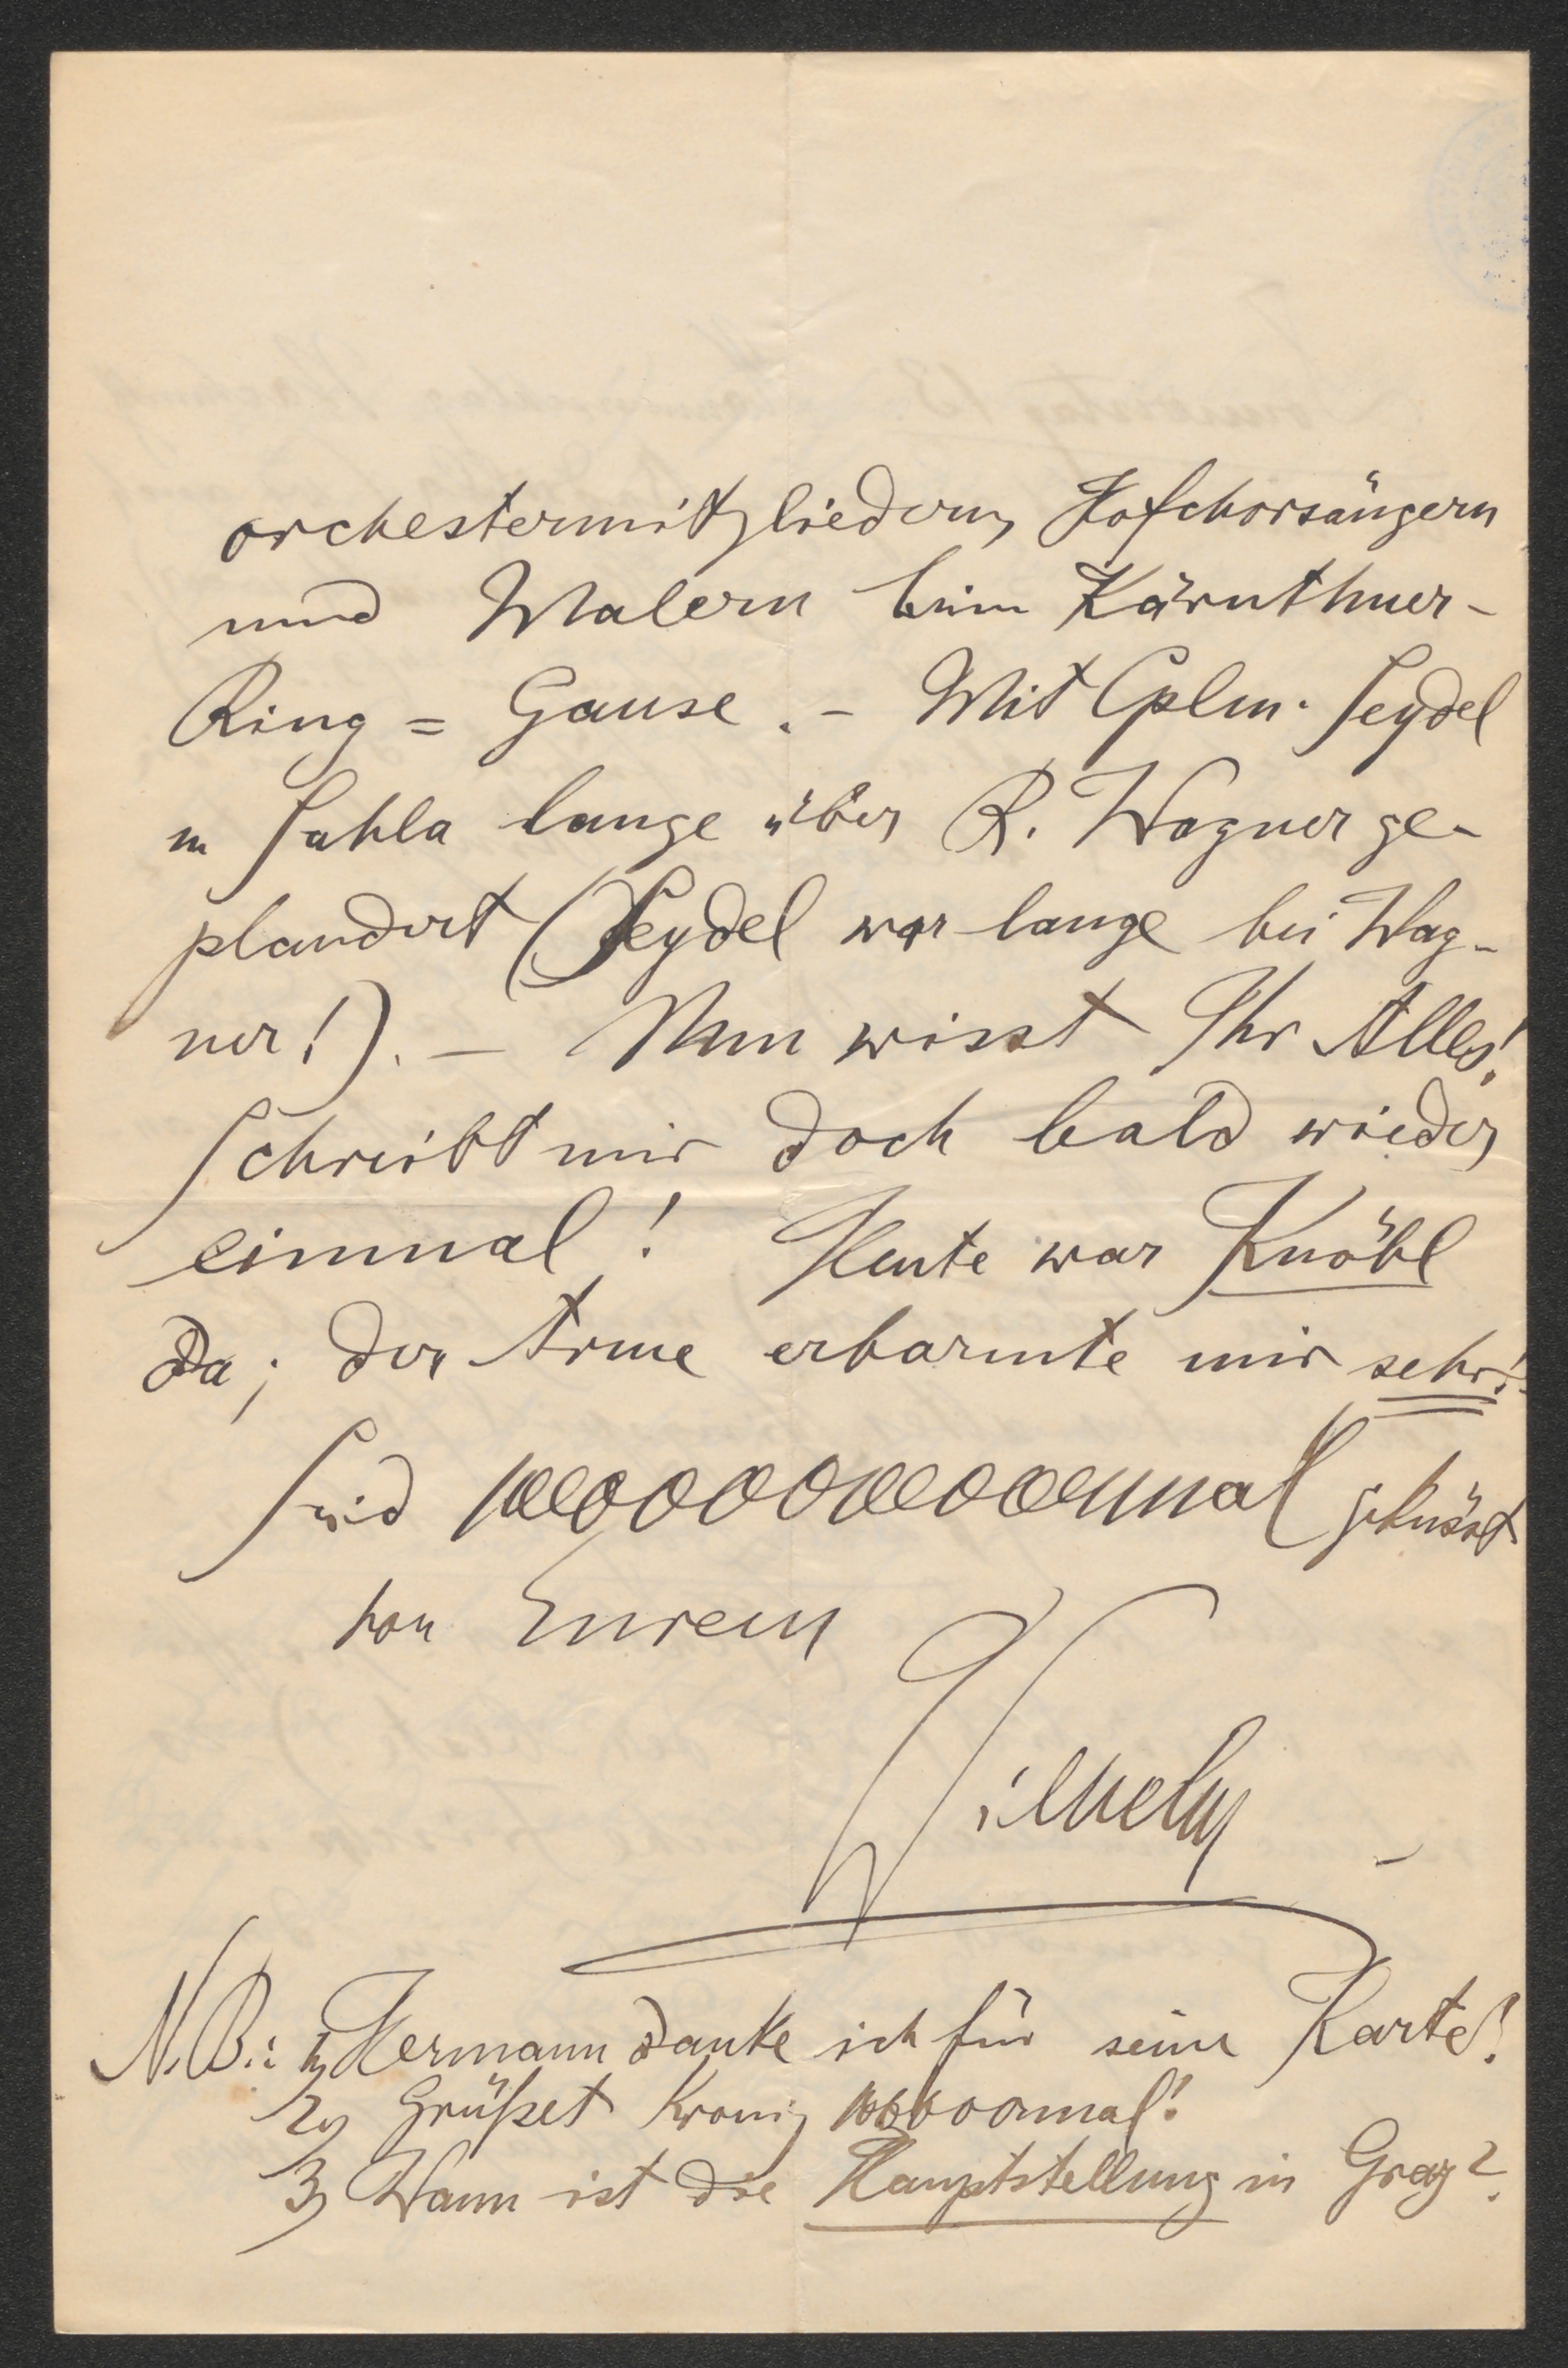 orchestermitgliedern, Hofchorsängern
und Malern beim Kärnthner-
Ring = Gause. – Mit Cplm. Seydel
u Sahla lange über R. Wagner ge-
plaudert (Seydel war lange bei Wag-
ner!). – Nun wisst Ihr Alles!
Schreibt mir doch bald wieder
einmal! Heute war Knöbl
da; der Arme erbarmte mir sehr!
Seid geküsst
von Eurem
Wilhelm
N.B.: 1) Hermann danke ich für seine Karte!
2) Grüßet
3) Wann ist die Hauptstellung in Graz?